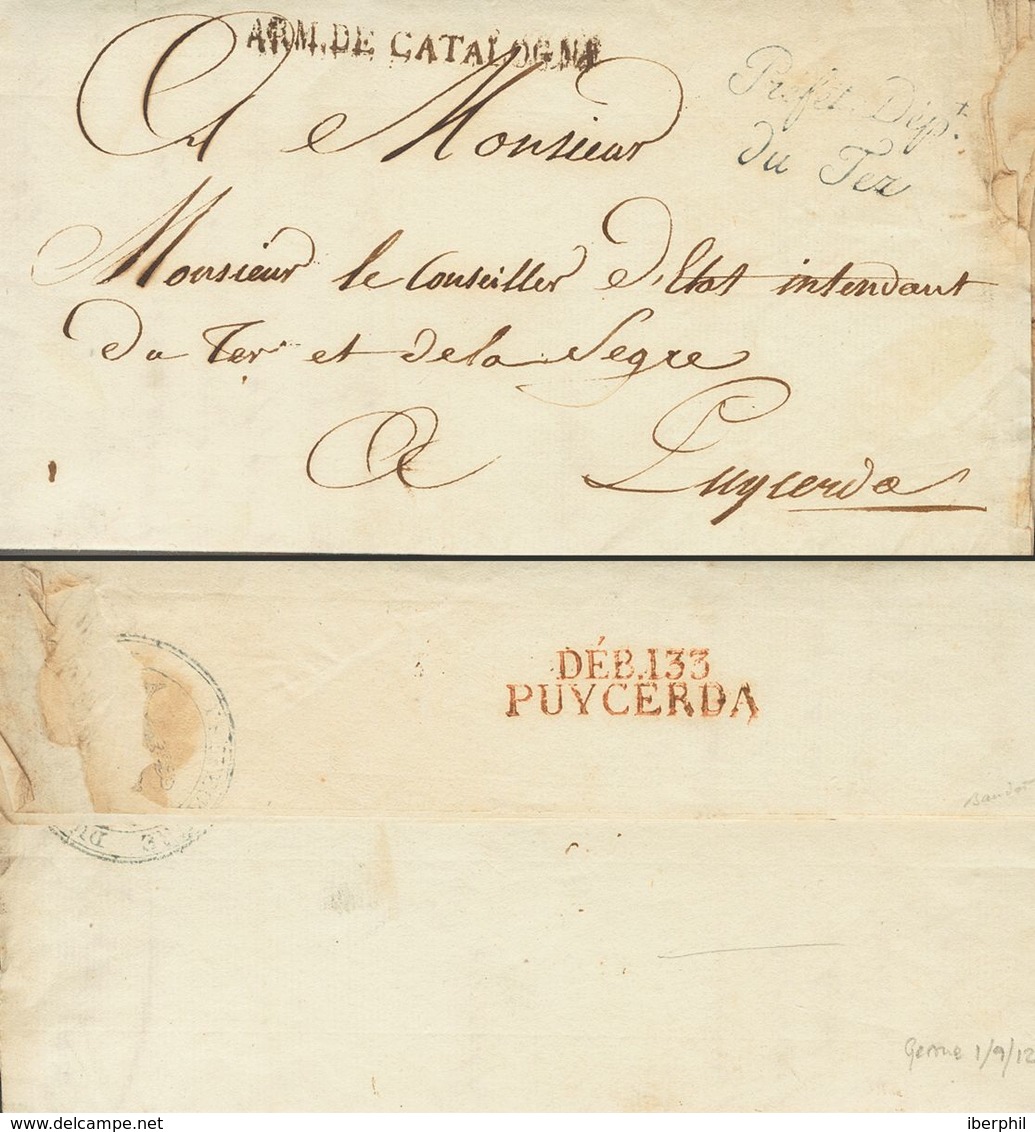 ARM. DE CATALOGNE
Préfet. Dép.t
du Ter
A Monsieur
Monsieur le Conseiller d'Etat intendant
du Ter et de la Segre
A Puycerda
DÉB. 133
PUYCERDA
Baudot
DU
Gerone 1/9/12
delcampe.net
iberphil